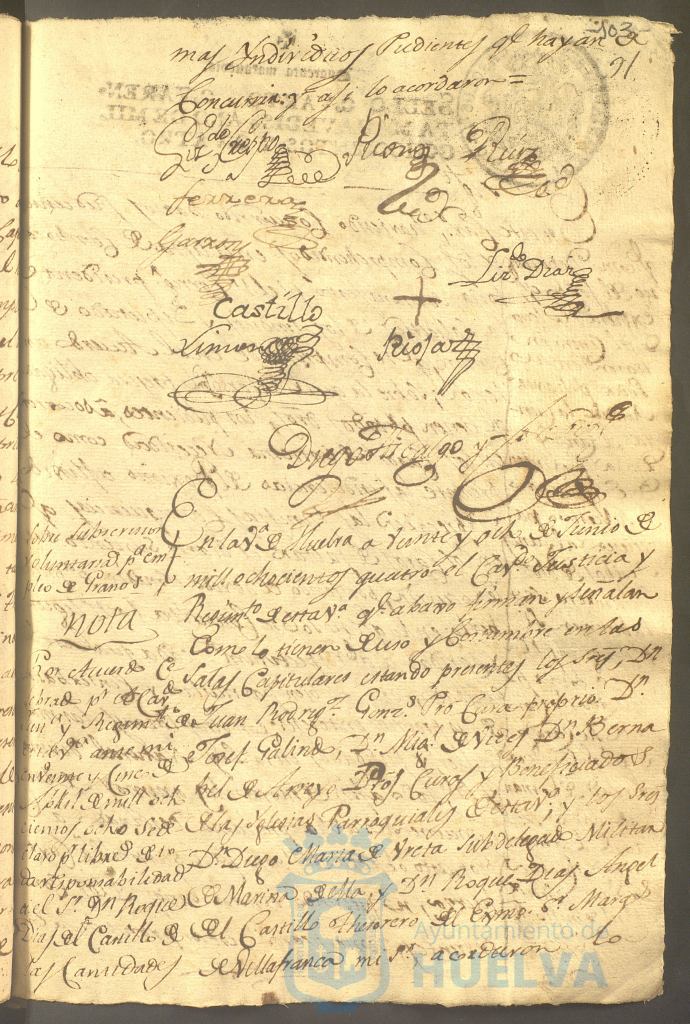 103
91
mas Yndividuos Pudientes qe hayan de
Concurrir: y asi lo acordaron =
Crespo
Ricon
Ruiz
Ferrera
Garzon
Lizdo Diaz
Castillo
+
Limon
Riofa
Diego Hidalgo y
Sobre Subscrison
voluntaria pa em
pleo de Granos
nota
Por Acuerdo Ce
lebrado pr el Cavdo
Justa y Regimto de
esta va ante mi
en Veinte y Cinco de
Abril de mill och
cientos ocho se de
claro pr libre de
responsabilidad
a el Sr Dn Roque
Dias del Castillo de
las Cantidades
En la va de Huelba a Veinte y ocho de Junio de
mill ochocientos quatro el Cavdo Justicia y
Regimto de esta va qe abaxo firman y señalan
Como lo tienen de uso y Costumbre en las
Salas Capitulares estando presentes los Sres Dn
Juan Rodrigz Gonzs Pro Cura proprio Dn
Josef Galindo, Dn Migl de Vides Dn Berna
bel de Arroyo Pros Curas y Beneficiados
de las Iglesias Parroquiales de esta va, y los Sres
Dn Diego Maria de Vreta Subdelegado Militar
de Marina de ella y Dn Roque Dias Angel
del Castillo thesorero del Exmo Sr Marqs
de Villafranca mi Sr acordaron lo
Ayuntamiento de
HUELVA